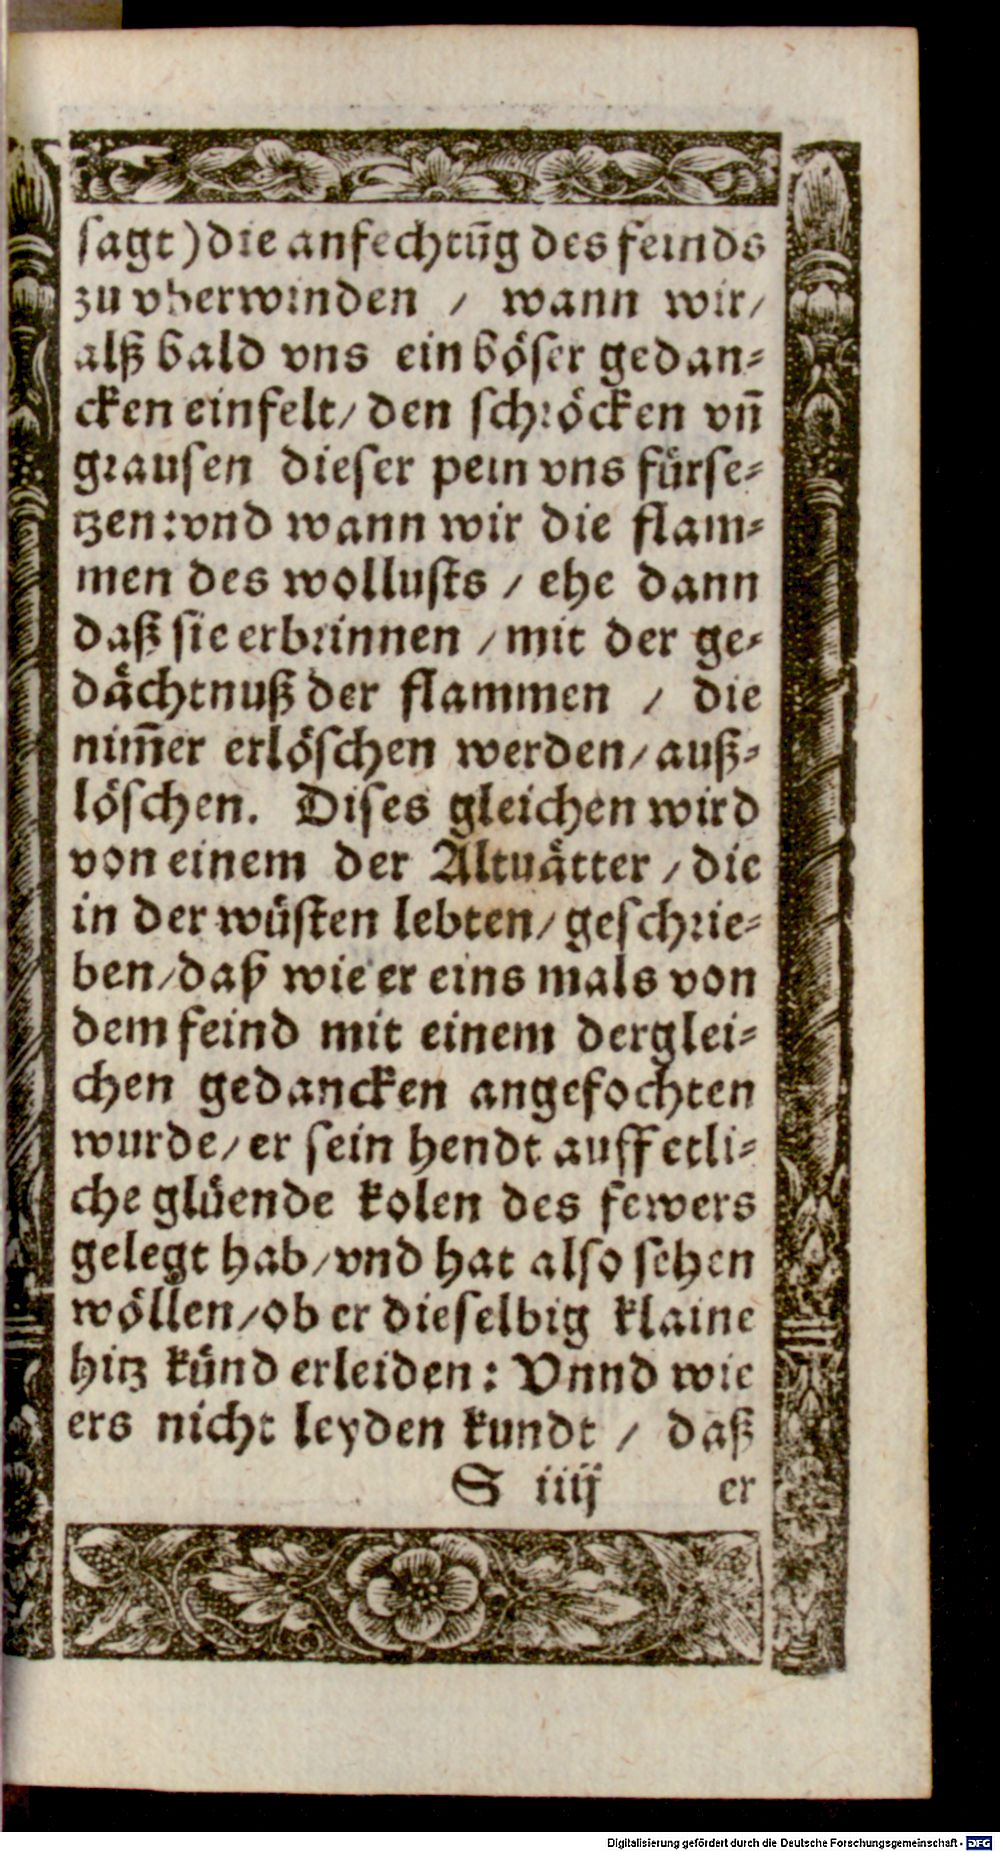 sagt) die anfechtūg des feinds
zu vberwinden / wann wir/
alß bald vns ein böser gedan⸗
cken einfelt/ den schröcken vn̄
grausen dieser pein vns fürse⸗
tzen: vnd wann wir die flam⸗
men des wollusts / ehe dann
daß sie erbrinnen / mit der ge⸗
dächtnuß der flammen / die
nim̄er erlöschen werden/ auß⸗
löschen. Dises gleichen wird
von einem der Altuätter / die
in der wüsten lebten/ geschrie⸗
ben/ daß wie er eins mals von
dem feind mit einem derglei⸗
chen gedancken angefochten
wurde/ er sein hendt auff etli⸗
che glüende kolen des fewers
gelegt hab/ vnd hat also sehen
wöllen/ ob er dieselbig klaine
hitz künd erleiden: Vnnd wie
ers nicht leyden kundt / daß
S iiij er
Digitalisierung gefördert durch die Deutsche Forschungsgemeinschaft - DFG